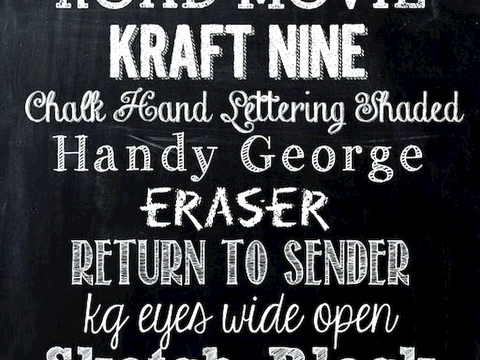 ROAD MOVIE
KRAFT NINE
Chalk Hand Lettering Shaded
Handy George
ERASER
RETURN TO SENDER
kg eyes wide open
Sketch Block